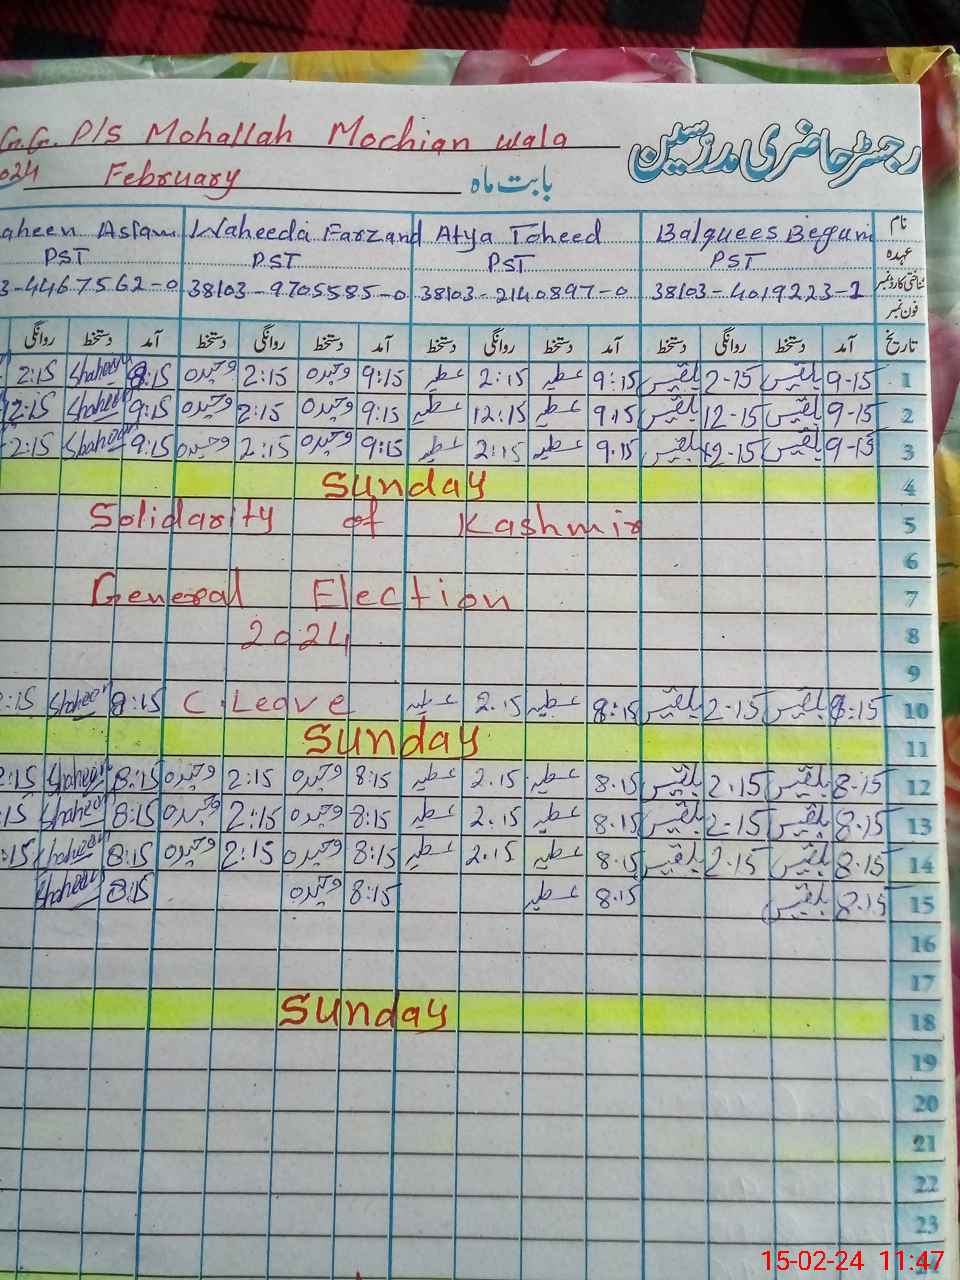 G.G. P/S Mohallah Mochian wala رجسٹر حاضری مدرسین
024 February بابت ماہ
aheen Aslam Waheeda Farzand Atya Toheed Balquees Begum نام
PST PST PST PST عہدہ
3-4467562-0 38103-9705585-0 38103-2140897-0 38103-4019223-1 شناختی کارڈ نمبر
فون نمبر
تاریخ آمد دستخط روانگی دستخط آمد دستخط روانگی دستخط آمد دستخط روانگی دستخط آمد دستخط روانگی
2:15 Shaheen 9:15 وحیدہ 2:15 وحیدہ 9:15 عطیہ 2:15 عطیہ 9:15 بلقیس 2-15 بلقیس 9-15 1
12:15 Shaheen 9:15 وحیدہ 2:15 وحیدہ 9:15 عطیہ 12:15 عطیہ 9.15 بلقیس 12-15 بلقیس 9-15 2
2:15 Shaheen 9:15 وحیدہ 2:15 وحیدہ 9:15 عطیہ 2:15 عطیہ 9.15 بلقیس 12-15 بلقیس 9-15 3
Sunday 4
Solidarity of Kashmir 5
6
General Election 7
2024 8
9
:15 Shaheen 8:15 C.Leave عطیہ 2.15 عطیہ 8:15 بلقیس 2-15 بلقیس 8:15 10
Sunday 11
2:15 Shaheen 8:15 وحیدہ 2:15 وحیدہ 8:15 عطیہ 2.15 عطیہ 8.15 بلقیس 2.15 بلقیس 8.15 12
:15 Shaheen 8:15 وحیدہ 2:15 وحیدہ 8:15 عطیہ 2.15 عطیہ 8.15 بلقیس 2-15 بلقیس 8.15 13
:15 Shaheen 8:15 وحیدہ 2:15 وحیدہ 8:15 عطیہ 2.15 عطیہ 8.15 بلقیس 2.15 بلقیس 8.15 14
Shaheen 8:15 وحیدہ 8:15 عطیہ 8.15 بلقیس 8.15 15
16
17
Sunday 18
19
20
21
22
23
24
15-02-24 11:47